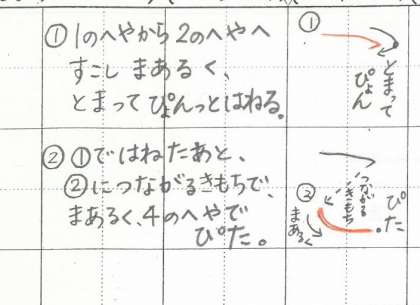 ①1のへやから2のへやへ
すこしまあるく、
とまってぴょんっとはねる。
①
とまって
ぴょん
②①ではねたあと、
②につながるきもちで、
まあるく、4のへやで
ぴた。
②
つながる
きもち
ぴた
まあるく